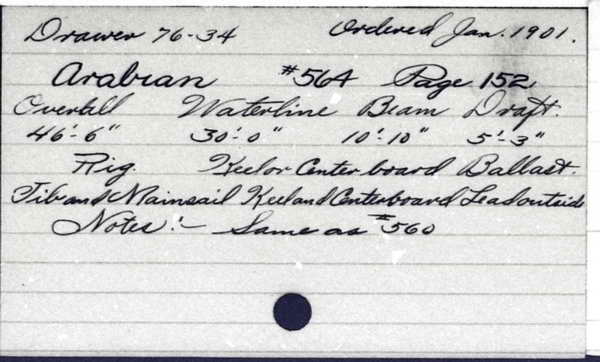 Drawer 76-34 Ordered Jan. 1901.
Arabian #564 Page 152
Overall Waterline Beam Draft.
46'-6" 30'-0" 10'-10" 5'-3"
Rig. Keel or Centerboard Ballast.
Jib and Mainsail Keel and Centerboard Lead outside
Notes:- Same as #560